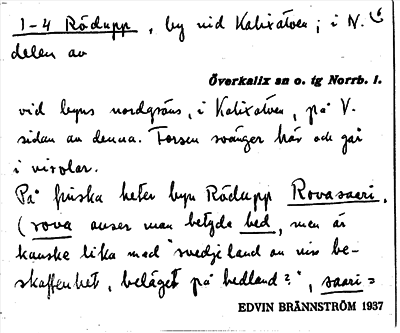 1-4 Rödupp, by vid Kalixälven; i N.
delen av
Överkalix sn o. tg Norrb. l.
vid byns nordgräns, i Kalixälven, på V.
sidan av denna. Forsen svänger här och går
i virvlar.
På finska heter byn Rödupp Rovasaari.
(rova anser man betyda hed, men är
kanske lika med "svedjeland av viss be-
skaffenhet, beläget på hedland?", saari =
EDVIN BRÄNNSTRÖM 1937